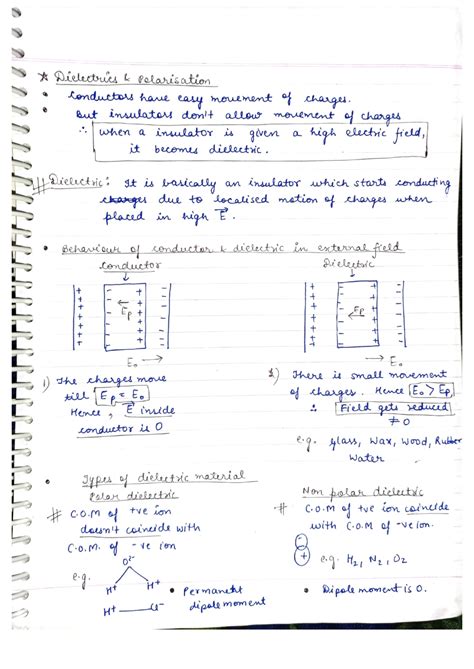 ☆ Dielectrics & Polarisation
• Conductors have easy movement of charges.
• But insulators don't allow movement of charges
∴ when a insulator is given a high electric field,
it becomes dielectric.
# Dielectric: It is basically an insulator which starts conducting
charges due to localised motion of charges when
placed in high E.
• Behaviour of conductor & dielectric in external field
Conductor
Dielectric
Ep
EP
E₀
E₀
1) The charges move
till Ep = E₀
Hence, E inside
conductor is 0
2) There is small movement
of charges. Hence E₀ > Ep,
∴ Field gets reduced
≠ 0
e.g. Glass, Wax, Wood, Rubber
Water
• Types of dielectric material
Polar dielectric
# C.O.M of +ve ion
doesn't coincide with
C.O.M. of -ve ion
e.g.
O²⁻
H⁺ H⁺
H⁺ — Cl⁻
• Permanent
dipole moment
Non polar dielectric
# C.O.M of +ve ion coincide
with C.O.M of -ve ion.
e.g. H₂, N₂, O₂
• Dipole moment is 0.